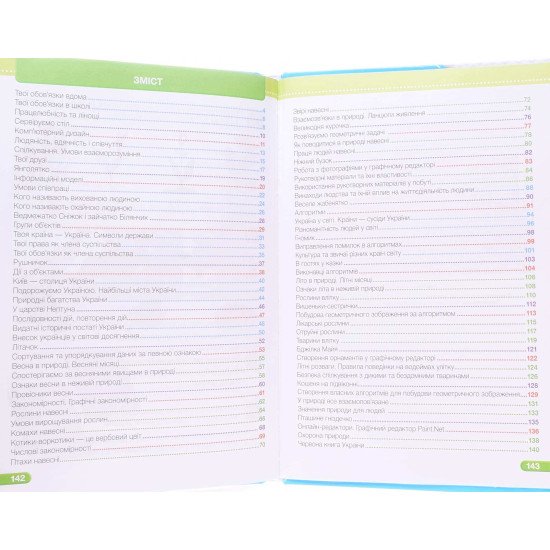 ЗМІСТ
Твої обов'язки вдома
Твої обов'язки в школі
Працелюбність та лінощі
Сервіруємо стіл
Комп'ютерний дизайн 10
Людяність, вдячність і співчуття 11
Спілкування. Умови взаєморозуміння 13
Твої друзі 15
Янголятко 17
Інформаційні моделі 19
Умови співпраці 20
Кого називають вихованою людиною 22
Кого називають охайною людиною 24
Ведмежатко Сніжок і зайчатко Білянчик 26
Групи об'єктів 29
Твоя країна — Україна. Символи держави 31
Твої права як члена суспільства 33
Твої обов'язки як члена суспільства 35
Рушничок 37
Дії з об'єктами 38
Київ — столиця України 40
Подорожуємо Україною. Найбільші міста України 42
Природні багатства України 44
У царстві Нептуна 46
Послідовності дій, повторення дій 47
Видатні історичні постаті України 49
Внесок українців у світові досягнення 50
Літачок 52
Сортування та упорядкування даних за певною ознакою 53
Весна в природі. Весняні місяці 55
Спостерігаємо за весняними явищами в природі 57
Ознаки весни в неживій природі 58
Провісники весни 60
Закономірності. Графічні закономірності 61
Рослини навесні 64
Умови вирощування рослин 66
Комахи навесні 68
Котики-воркотики — це вербовий цвіт 69
Числові закономірності 70
Птахи навесні
142
Звірі навесні 72
Взаємозв'язки в природі. Ланцюги живлення 74
Великодня курочка 76
Розв'язуємо геометричні задачі 77
Як поводитися в природі навесні 78
Праця людей навесні 80
Ніжний бузок 82
Робота з фотографіями у графічному редакторі 83
Рукотворні матеріали та їхні властивості 84
Використання рукотворних матеріалів у побуті 86
Винаходи людства та їхній вплив на життєдіяльність людини 88
Веселе жабенятко 90
Алгоритми 91
Україна у світі. Країни — сусіди України 94
Різноманітність людей у світі 96
Їжачок 98
Виправлення помилок в алгоритмах 99
Культура та звичаї різних країн світу 101
В гостях у казки 103
Виконавці алгоритмів 104
Літо в природі. Літні місяці 106
Ознаки літа в неживій природі 108
Рослини влітку 110
Вишеньки-сестрички 112
Побудова геометричного зображення за алгоритмом 113
Лікарські рослини 115
Отруйні рослини 117
Тварини влітку 119
Бджілка Майя 121
Створення орнаментів у графічному редакторі 122
Літні розваги. Правила поведінки на водоймах улітку 124
Безпека спілкування з дикими та бездомними тваринами 126
Кошеня на підвіконні 128
Створення власних алгоритмів для побудови геометричного зображення 129
У природі все взаємопов'язано 131
Значення природи для людей 133
Пташине гніздечко 135
Онлайн-редактори. Графічний редактор Paint Net 136
Охорона природи 138
Червона книга України 140
143